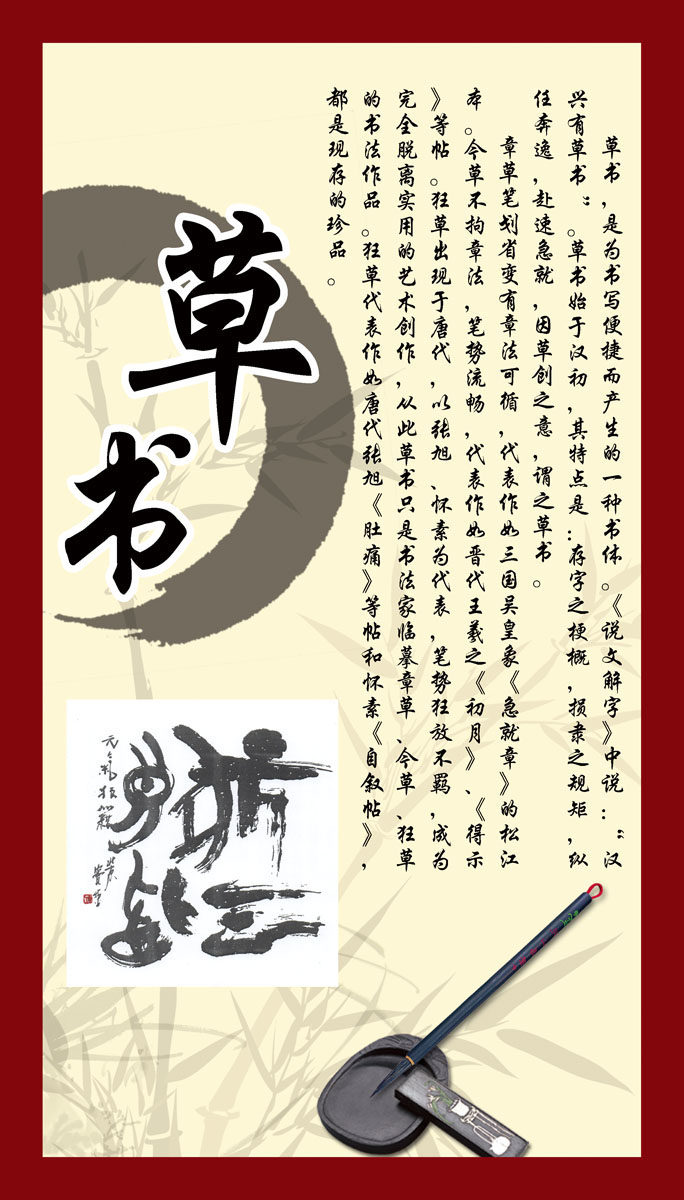 草书
草书，是为书写便捷而产生的一种书体。《说文解字》中说：“汉
兴有草书”。草书始于汉初，其特点是：存字之梗概，损隶之规矩，纵
任奔逸，赴速急就，因草创之意，谓之草书。
章草笔划省变有章法可循，代表作如三国吴皇象《急就章》的松江
本。今草不拘章法，笔势流畅，代表作如晋代王羲之《初月》、《得示
》等帖。狂草出现于唐代，以张旭、怀素为代表，笔势狂放不羁，成为
完全脱离实用的艺术创作，从此草书只是书法家临摹章草、今草、狂草
的书法作品。狂草代表作如唐代张旭《肚痛》等帖和怀素《自叙帖》，
都是现存的珍品。